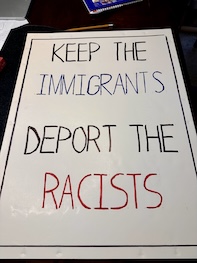 KEEP THE
IMMIGRANTS
DEPORT THE
RACISTS